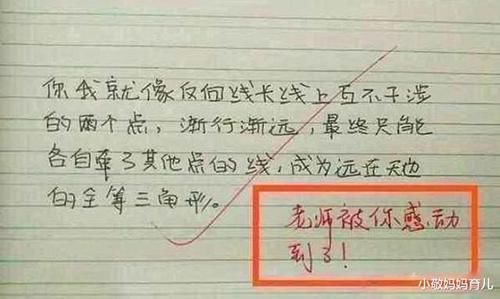 你我就像反向线长线上互不干涉
的两个点，渐行渐远，最终只能
各自牵了其他点的线，成为远在天边
的全等三角形。
老师被你感动
到了！
小敬妈妈育儿